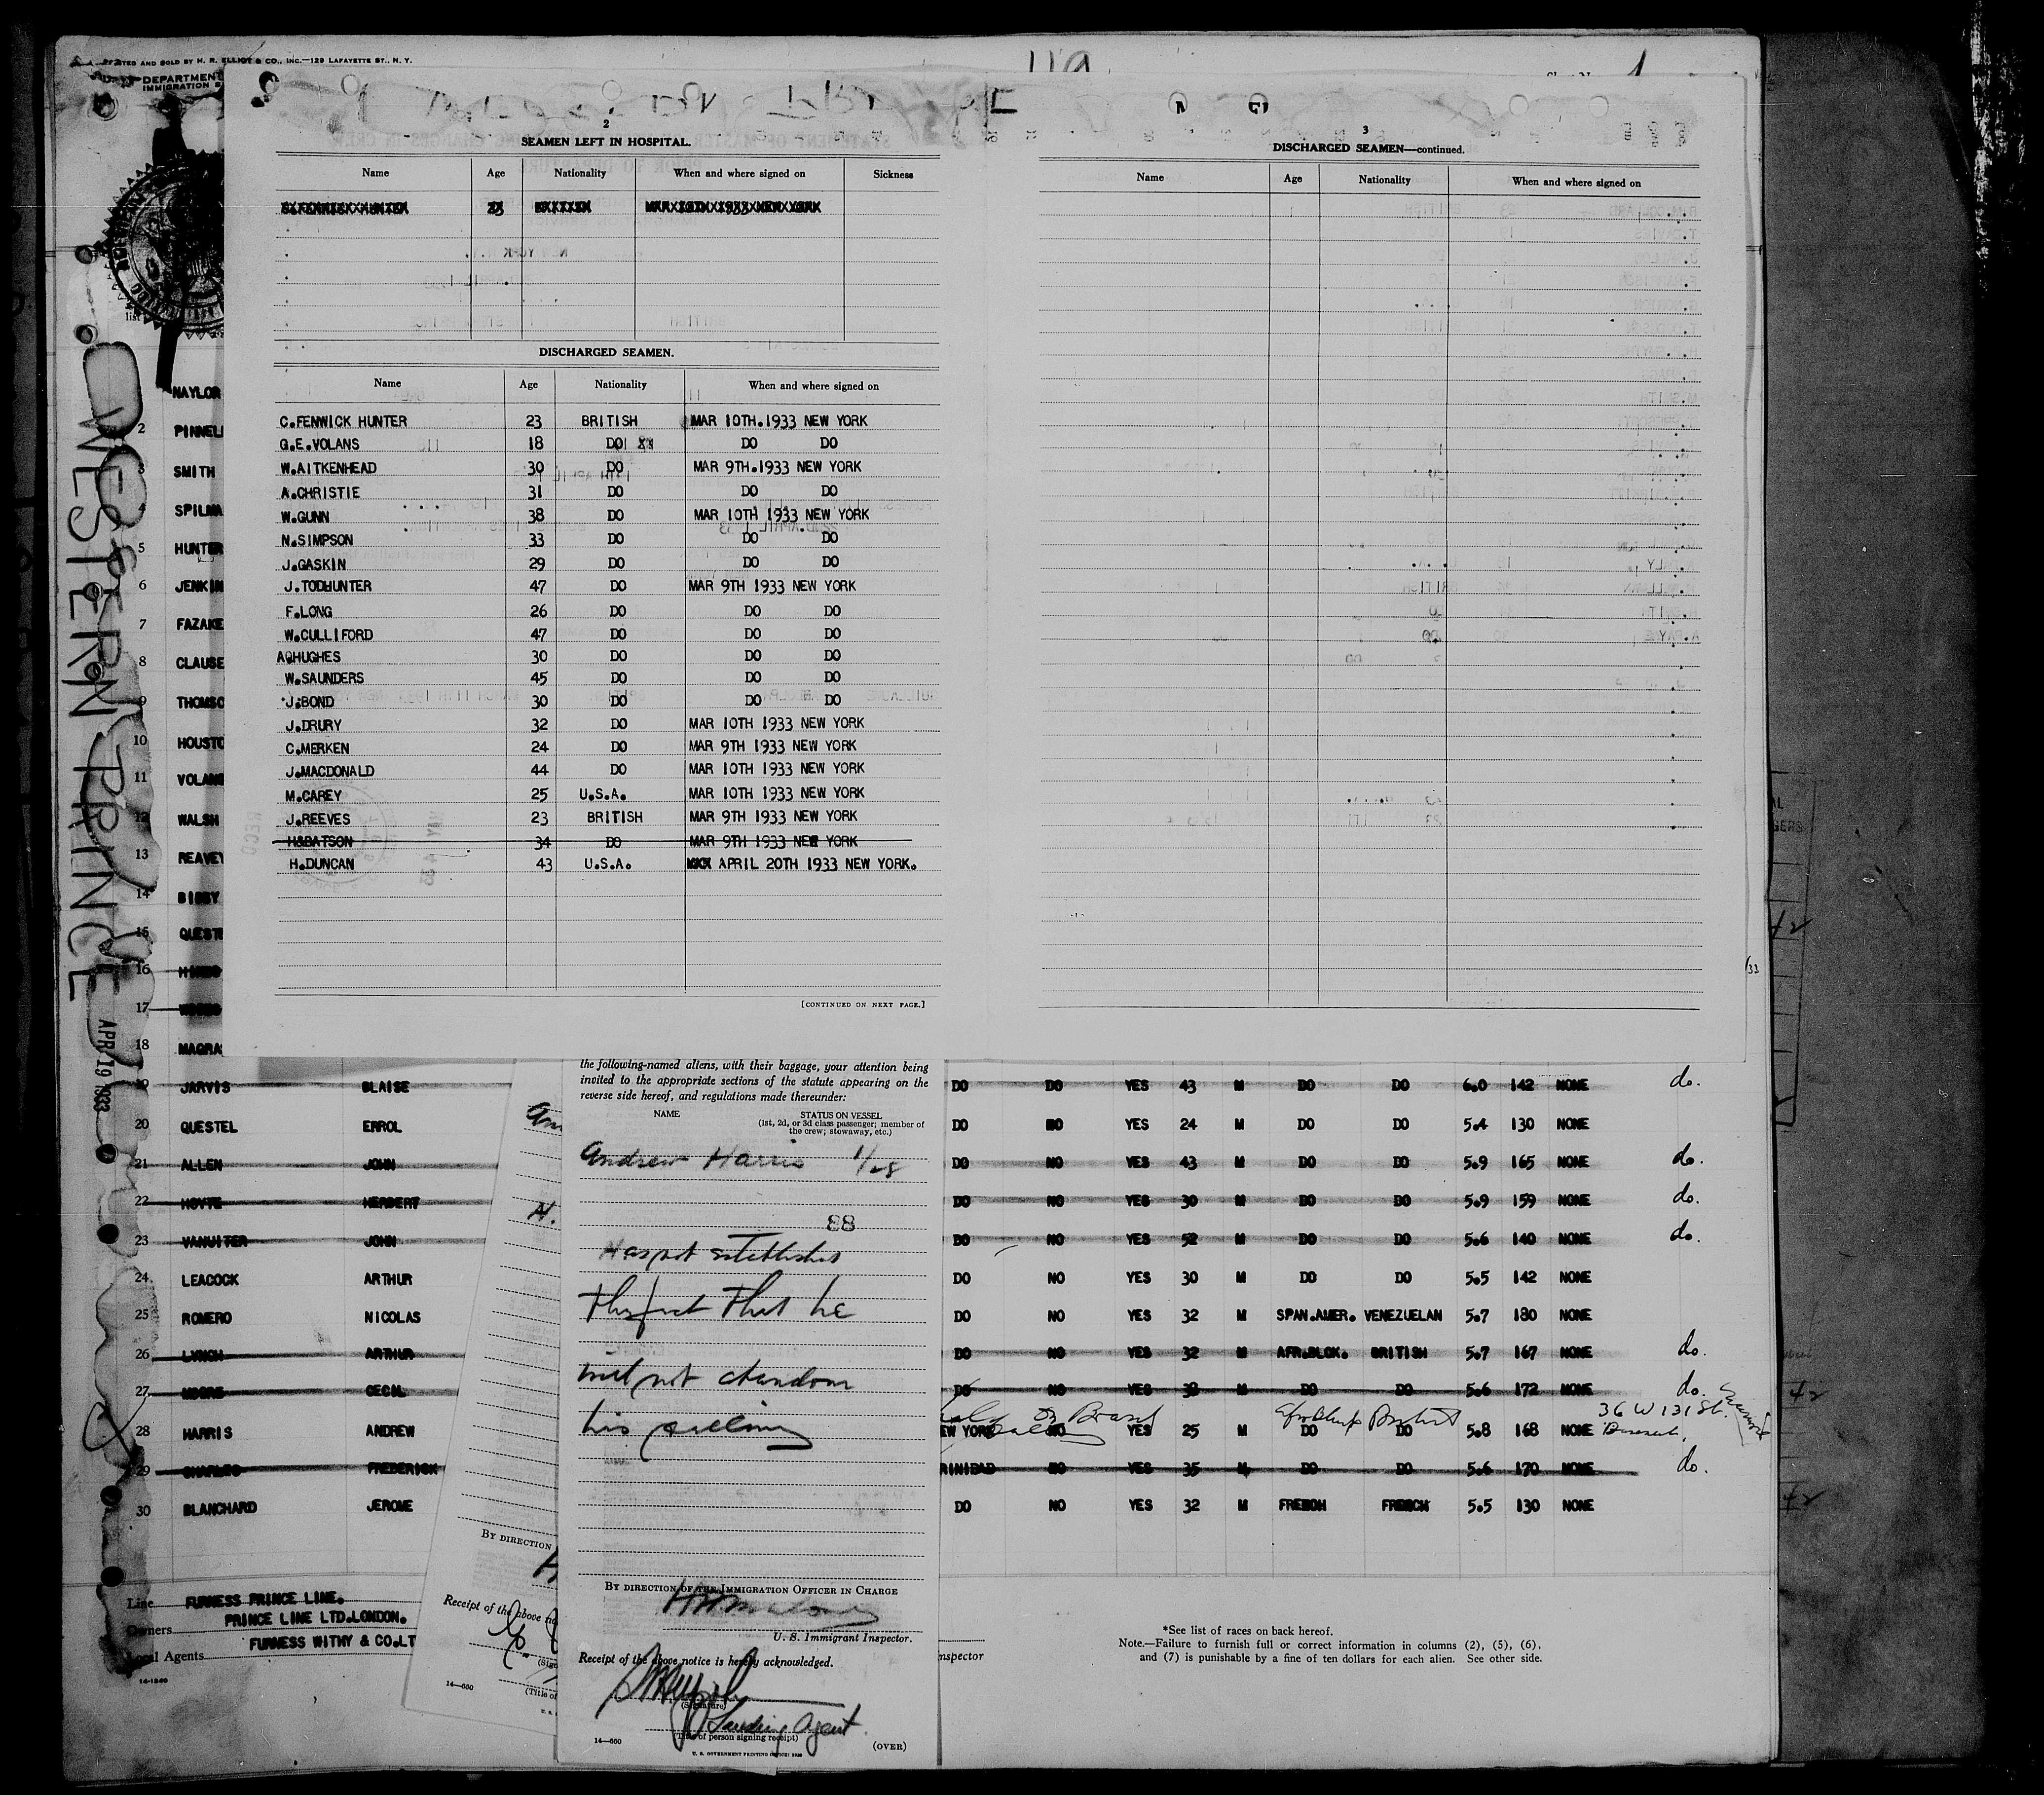 PRINTED AND SOLD BY H. R. ELLIOT & CO., INC.—129 LAFAYETTE ST., N. Y.
DEPARTMENT
IMMIGRATION
WESTERN PRINCE
APR 19 1933
2
SEAMEN LEFT IN HOSPITAL.
Name Age Nationality When and where signed on Sickness
DISCHARGED SEAMEN.
Name Age Nationality When and where signed on
C.FENWICK HUNTER 23 BRITISH MAR 10TH.1933 NEW YORK
G.E.VOLANS 18 DO DO DO
W.AITKENHEAD 30 DO MAR 9TH.1933 NEW YORK
A.CHRISTIE 31 DO DO DO
W.GUNN 38 DO MAR 10TH 1933 NEW YORK
N.SIMPSON 33 DO DO DO
J.GASKIN 29 DO DO DO
J.TODHUNTER 47 DO MAR 9TH 1933 NEW YORK
F.LONG 26 DO DO DO
W.CULLIFORD 47 DO DO DO
A.HUGHES 30 DO DO DO
W.SAUNDERS 45 DO DO DO
J.BOND 30 DO DO DO
J.DRURY 32 DO MAR 10TH 1933 NEW YORK
C.MERKEN 24 DO MAR 9TH 1933 NEW YORK
J.MACDONALD 44 DO MAR 10TH 1933 NEW YORK
M.CAREY 25 U.S.A. MAR 10TH 1933 NEW YORK
J.REEVES 23 BRITISH MAR 9TH 1933 NEW YORK
H.BATSON 34 DO MAR 9TH 1933 NEW YORK
H.DUNCAN 43 U.S.A. APRIL 20TH 1933 NEW YORK.
[CONTINUED ON NEXT PAGE.]
3
DISCHARGED SEAMEN—continued.
Name Age Nationality When and where signed on
NAYLOR
2 PINNELL
3 SMITH
4 SPILMA
5 HUNTER
6 JENKIN
7 FAZAKE
8 CLAUSE
9 THOMSO
10 HOUSTO
11 VOLANS
12 WALSH
13 REAVEY
14 BIBBY
15 QUESTE
16
17
18 MAGRA
19 JARVIS BLAISE DO DO YES 43 M DO DO 6.0 142 NONE do.
20 QUESTEL ERROL DO NO YES 24 M DO DO 5.4 130 NONE
21 ALLEN JOHN DO NO YES 43 M DO DO 5.9 165 NONE do.
22 HOYTE HERBERT DO NO YES 30 M DO DO 5.9 159 NONE do.
23 VANUITER JOHN DO NO YES 52 M DO DO 5.6 140 NONE do.
24 LEACOCK ARTHUR DO NO YES 30 M DO DO 5.5 142 NONE
25 ROMERO NICOLAS DO NO YES 32 M SPAN.AMER. VENEZUELAN 5.7 180 NONE
26 LYNCH ARTHUR DO NO YES 32 M AFR.BLCK. BRITISH 5.7 167 NONE do.
27 MOORE CECIL DO NO YES 38 M DO DO 5.6 172 NONE do.
28 HARRIS ANDREW EW YORK NO YES 25 M DO DO 5.8 168 NONE 36 W 131 St.
29 CHARLES FREDERICK RINIDAD NO YES 35 M DO DO 5.6 170 NONE do.
30 BLANCHARD JEROME DO NO YES 32 M FRENCH FRENCH 5.5 130 NONE
Line FURNESS PRINCE LINE.
Owners PRINCE LINE LTD.LONDON.
Local Agents FURNESS WITHY & CO.LT
14-1240
BY DIRECTION
Receipt of the above no
14—660
(Title of
the following-named aliens, with their baggage, your attention being
invited to the appropriate sections of the statute appearing on the
reverse side hereof, and regulations made thereunder:
NAME STATUS ON VESSEL
(1st, 2d, or 3d class passenger; member of
the crew; stowaway, etc.)
Andrew Harris 1/28
88
Has not established
the fact that he
will not abandon
his calling
BY DIRECTION OF THE IMMIGRATION OFFICER IN CHARGE
U. S. Immigrant Inspector.
Receipt of the above notice is hereby acknowledged.
(Signature)
Landing Agent.
(Title of person signing receipt)
14—660 (OVER)
U. S. GOVERNMENT PRINTING OFFICE
nspector
*See list of races on back hereof.
Note.—Failure to furnish full or correct information in columns (2), (5), (6),
and (7) is punishable by a fine of ten dollars for each alien. See other side.